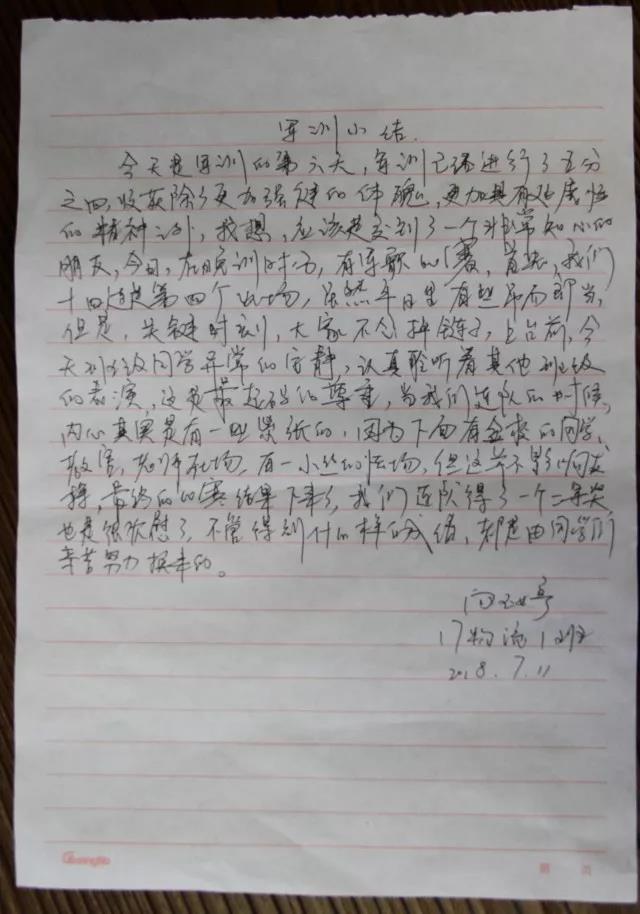 军训小结.
今天是军训的第六天,军训已经进行了五分
之四,收获除了更加强健的体魄,更加具有
的精神之外,我想,应该是交到了一个非常知心的
朋友,今日,在晚训时,有连歌比赛,首先,我们
十四连是第四个出场,虽然平日里有些吊而郎当,
但是,关键时刻,大家不会掉链子,上台前,今
天班级同学异常的安静,认真聆听着其他班级
的表演,这是最起码的尊重,当我们连队的时候,
内心其实是有一些紧张的,因为下面有全校的同学、
教官、老师在场,有一小丝的怯场,但这并不影响发
挥,最终的比赛结果下来了,我们连队得了一个二等奖
也是很欣慰了,不管得到什么样的成绩,都是由同学们
辛苦努力换来的。
17物流1班
2018.7.11
Guangbo
第 页